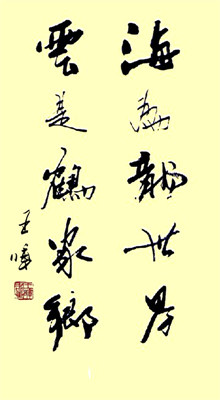 海為龍世界
雲是鶴家鄉
王